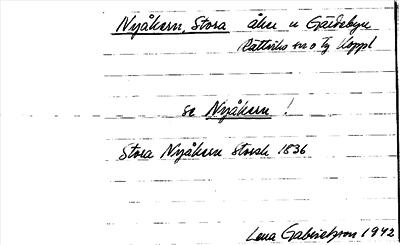 Nyåkern, Stora åker n Gärdebyn
Rättviks sn o tg Koppl
se Nyåkern!
Stora Nyåkern Storsk 1836
Lena Gabrielsson 1942